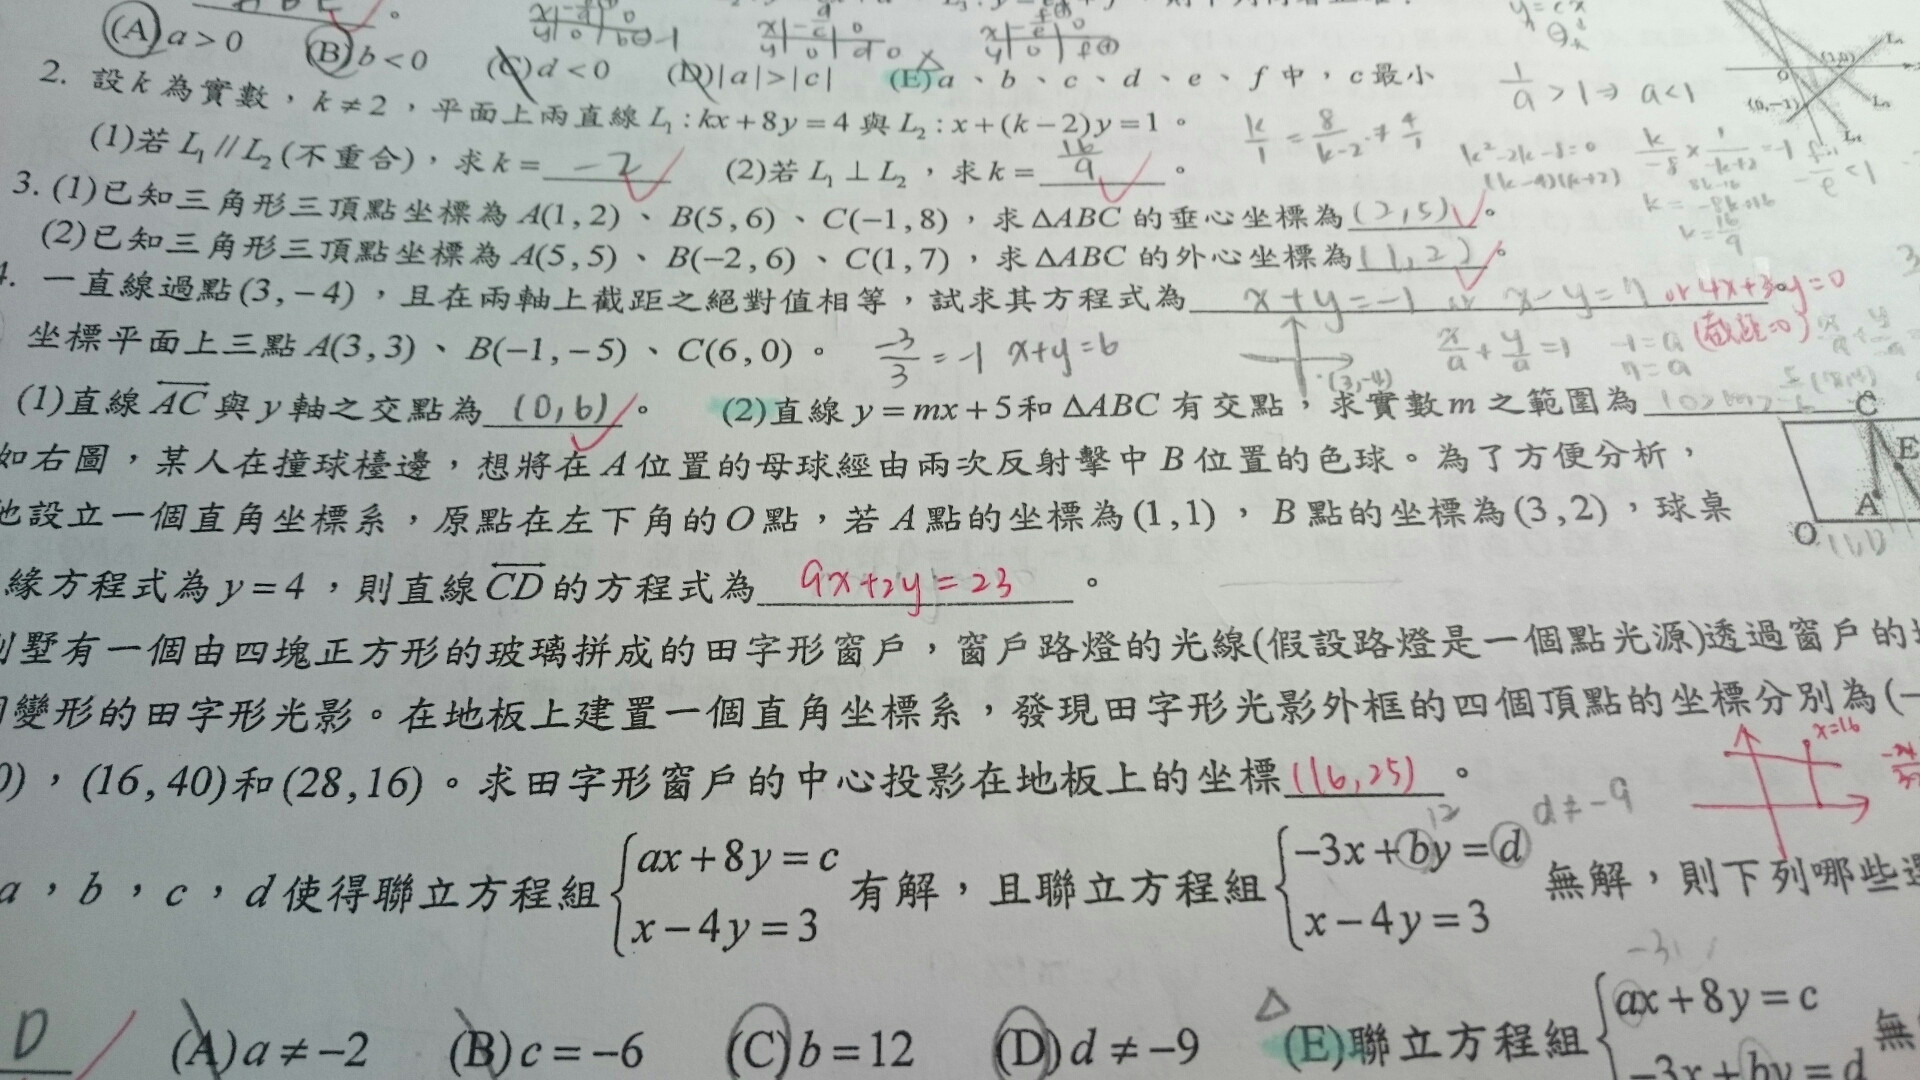 (A) a > 0 (B) b < 0 (C) d < 0 (D) |a| > |c| (E) a、b、c、d、e、f 中，c 最小
2. 設 k 為實數，k ≠ 2，平面上兩直線 L₁ : kx + 8y = 4 與 L₂ : x + (k − 2)y = 1。
(1)若 L₁ // L₂ (不重合)，求 k = −2 (2)若 L₁ ⊥ L₂，求 k = 16/9 。
3. (1)已知三角形三頂點坐標為 A(1, 2)、B(5, 6)、C(−1, 8)，求 ΔABC 的垂心坐標為 (2,5) 。
(2)已知三角形三頂點坐標為 A(5, 5)、B(−2, 6)、C(1, 7)，求 ΔABC 的外心坐標為 (1,2) 。
4. 一直線過點(3, −4)，且在兩軸上截距之絕對值相等，試求其方程式為 x+y=−1 or x−y=7 or 4x+3y=0
(截距=0)
坐標平面上三點 A(3, 3)、B(−1, −5)、C(6, 0)。 −3/3 = −1 x+y=6
x/a + y/a = 1 −1=a
7=a
(3,−4)
(1)直線 AC 與 y 軸之交點為 (0,6) 。 (2)直線 y = mx + 5 和 ΔABC 有交點，求實數 m 之範圍為
如右圖，某人在撞球檯邊，想將在 A 位置的母球經由兩次反射擊中 B 位置的色球。為了方便分析，
他設立一個直角坐標系，原點在左下角的 O 點，若 A 點的坐標為 (1, 1)，B 點的坐標為 (3, 2)，球桌
緣方程式為 y = 4，則直線 CD 的方程式為 9x+2y=23 。
C E A O (1,1)
別墅有一個由四塊正方形的玻璃拼成的田字形窗戶，窗戶路燈的光線(假設路燈是一個點光源)透過窗戶的
變形的田字形光影。在地板上建置一個直角坐標系，發現田字形光影外框的四個頂點的坐標分別為 (−
0)，(16, 40)和 (28, 16)。求田字形窗戶的中心投影在地板上的坐標 (16,25) 。
x=16
a，b，c，d 使得聯立方程組 { ax + 8y = c 有解，且聯立方程組 { −3x + by = d 無解，則下列哪些選
x − 4y = 3 x − 4y = 3
12 d ≠ −9
D (A) a ≠ −2 (B) c = −6 (C) b = 12 (D) d ≠ −9 (E)聯立方程組 { ax + 8y = c 無
−3x + by = d